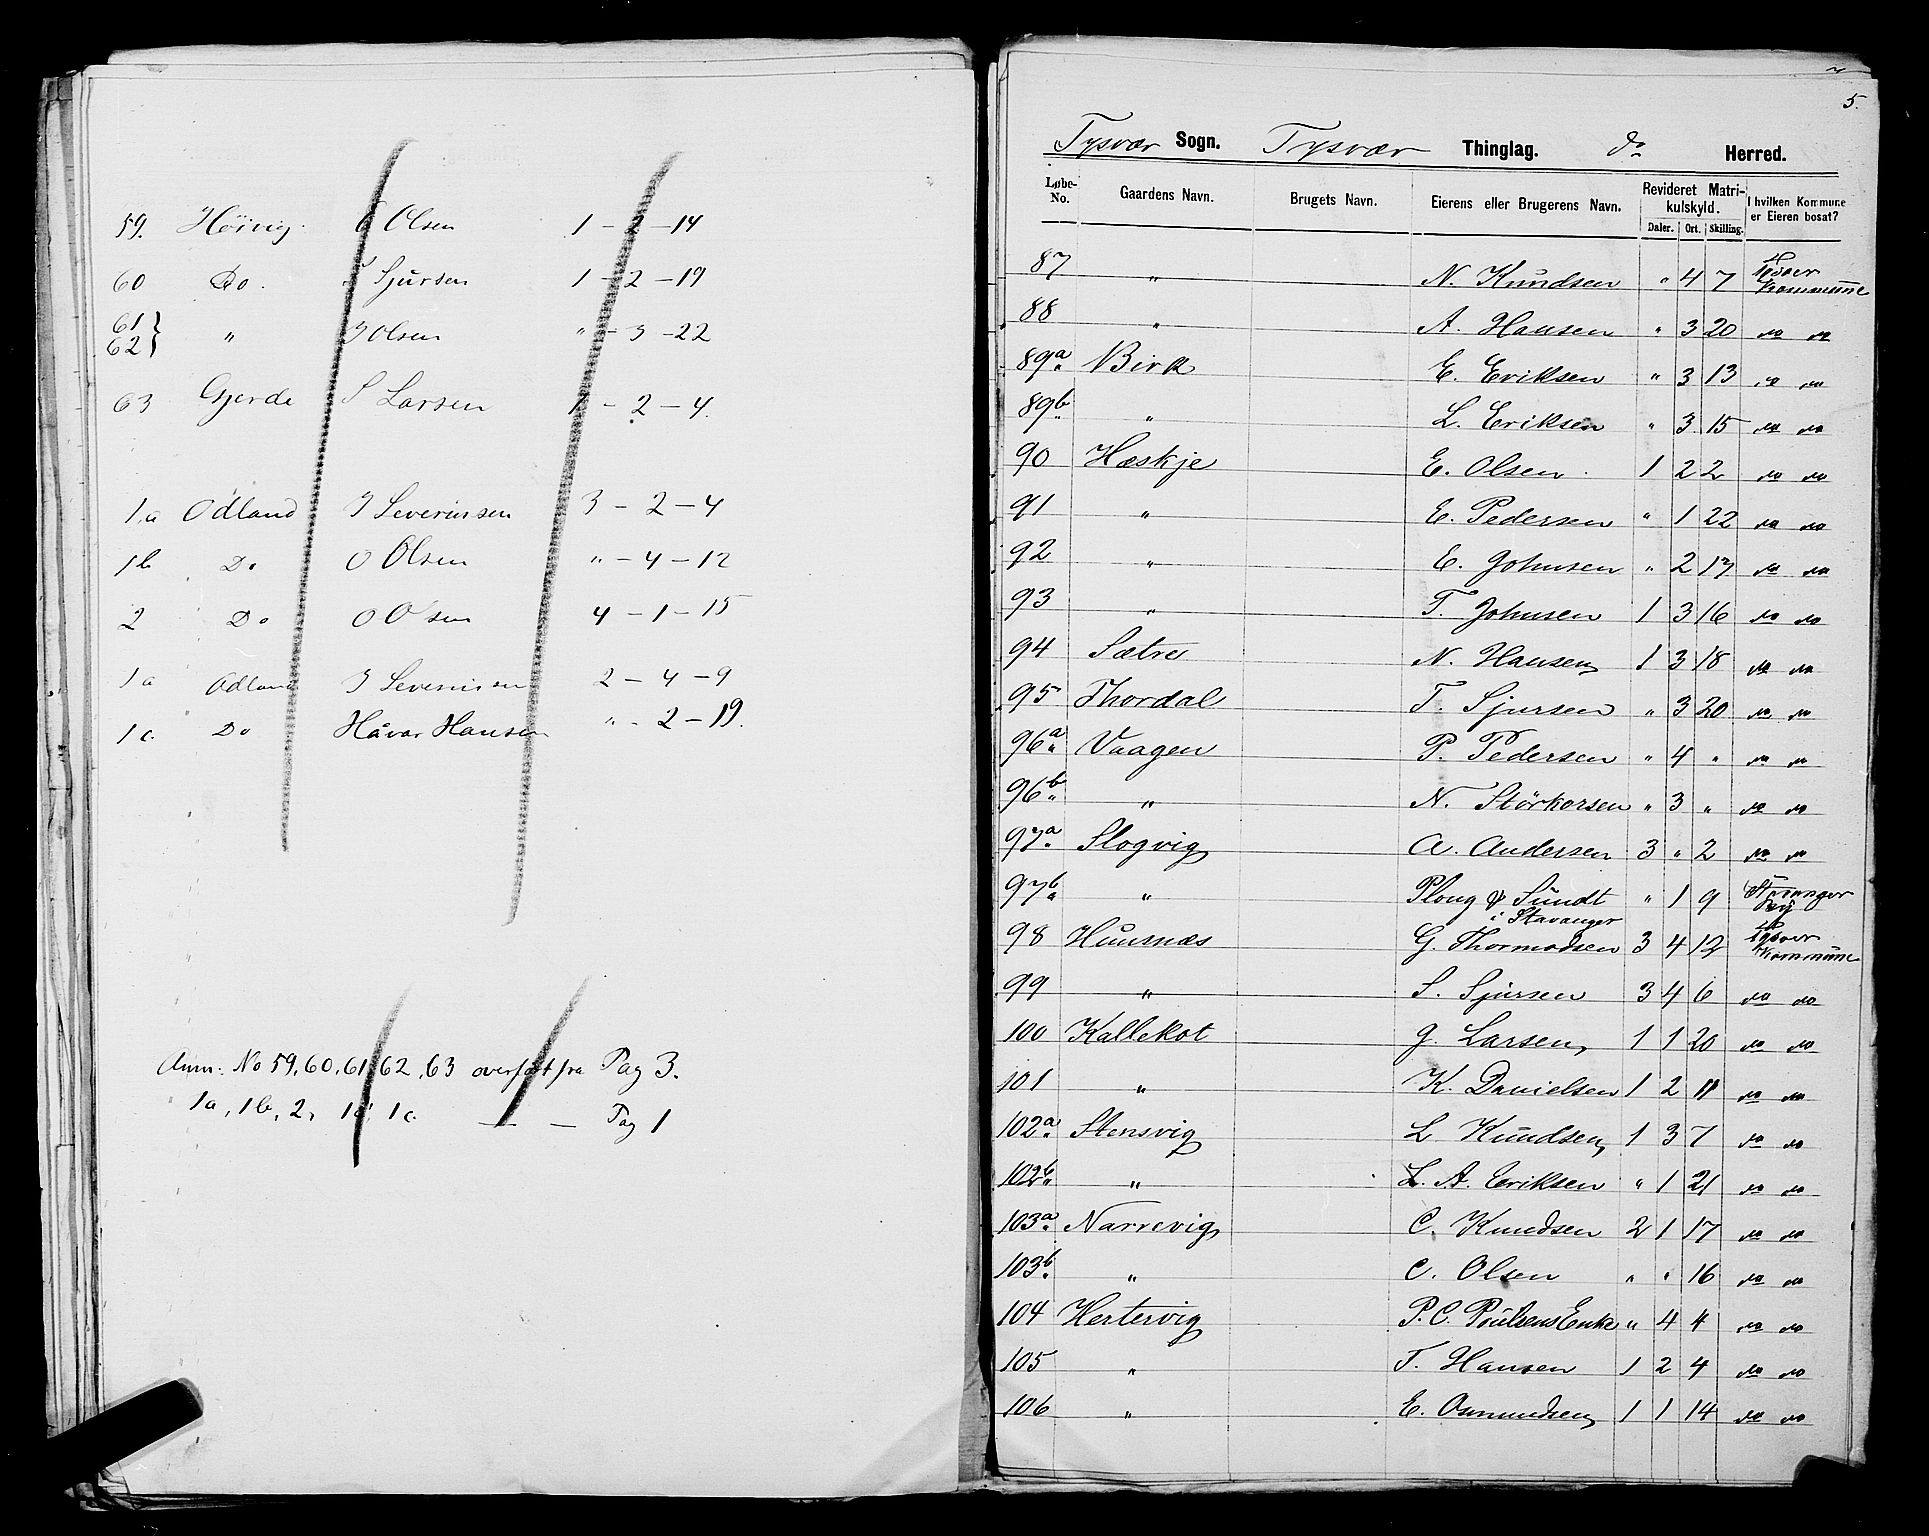 59. Höivig. E Olsen 1 - 2 - 14
60 Do. S Sjursen 1 - 2 - 19
61 } " J Olsen " - 3 - 22
62 }
63 Gjerde S Larsen 1 - 2 - 4.
1a Odland J Severinsen 3 - 2 - 4
1b Do O Olsen " - 4 - 12
2 Do O Olsen 4 - 1 - 15
1a Odland J Severinsen 2 - 4 - 9
1c Do Håvar Hansen " - 2 - 19.
Anm: No 59, 60, 61, 62, 63 overført fra Pag 3.
1a, 1b, 2, 1a, 1c. — — Pag 1
5.
Tysvær Sogn. Tysvær Thinglag. do Herred.
Løbe-No. Gaardens Navn. Brugets Navn. Eierens eller Brugerens Navn. Revideret Matrikulskyld. I hvilken Kommune er Eieren bosat?
Daler. Ort. Skilling.
87 " N. Knudsen " 4 7 Tysvær Kommune
88 " A. Hansen " 3 20 do do
89a. Birk E. Eriksen " 3 13 do do
89b. " L. Eriksen " 3 15 do do
90 Hæskje E. Olsen 1 2 2 do do
91 " E. Pedersen " 1 22 do do
92 " E. Johnsen " 2 17 do do
93 " T. Johnsen 1 3 16 do do
94 Sætre N. Hansen 1 3 18 do do
95 Thordal T. Sjursen " 3 20 do do
96a. Vaagen P. Pedersen " 4 " do do
96b. " N. Störkorsen " 3 " do do
97a. Slogvig A. Andersen 3 " 2 do do
97b. " Ploug & Sundt i Stavanger " 1 9 Stavanger By
98 Huusnæs G. Thormodsen 3 4 12 Tysvær Kommune
99 " S. Sjursen 3 4 6 do do
100 Kallekot G. Larsen 1 1 20 do do
101 " K. Danielsen 1 2 11 do do
102a. Stensvig L Knudsen 1 3 7 do do
102b. " L. A. Eriksen " 1 21 do do
103a. Narrevig C. Knudsen 2 1 17 do do
103b. " C. Olsen " " 16 do do
104 Hertervig P. C. Poulsens Enke " 4 4 do do
105 " T. Hansen 1 2 4 do do
106 " E. Osmundsen 1 1 14 do do